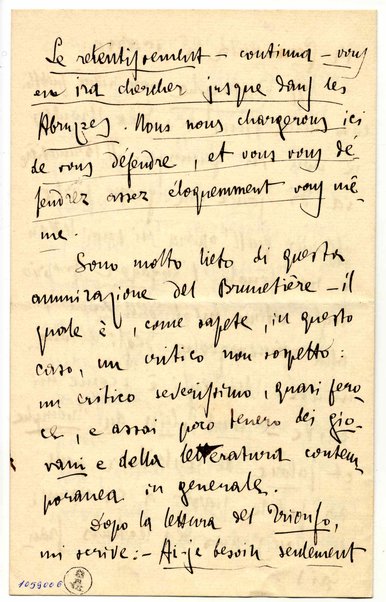 Le retentissement – continua – vous
en ira chercher jusque dans les
Abruzzes. Nous nous chargerons ici
de vous défendre, et vous vous dé-
fendrez assez éloquemment vous mê-
me.
Sono molto lieto di questa
ammirazione del Brunetière – il
quale è, come sapete, in questo
caso, un critico non sospetto:
un critico severissimo, quasi fero-
ce, e assai poco tenero dei gio-
vani e della letteratura contem-
poranea in generale.
Dopo la lettura del Trionfo,
mi scrive: – Ai-je besoin seulement
1059006